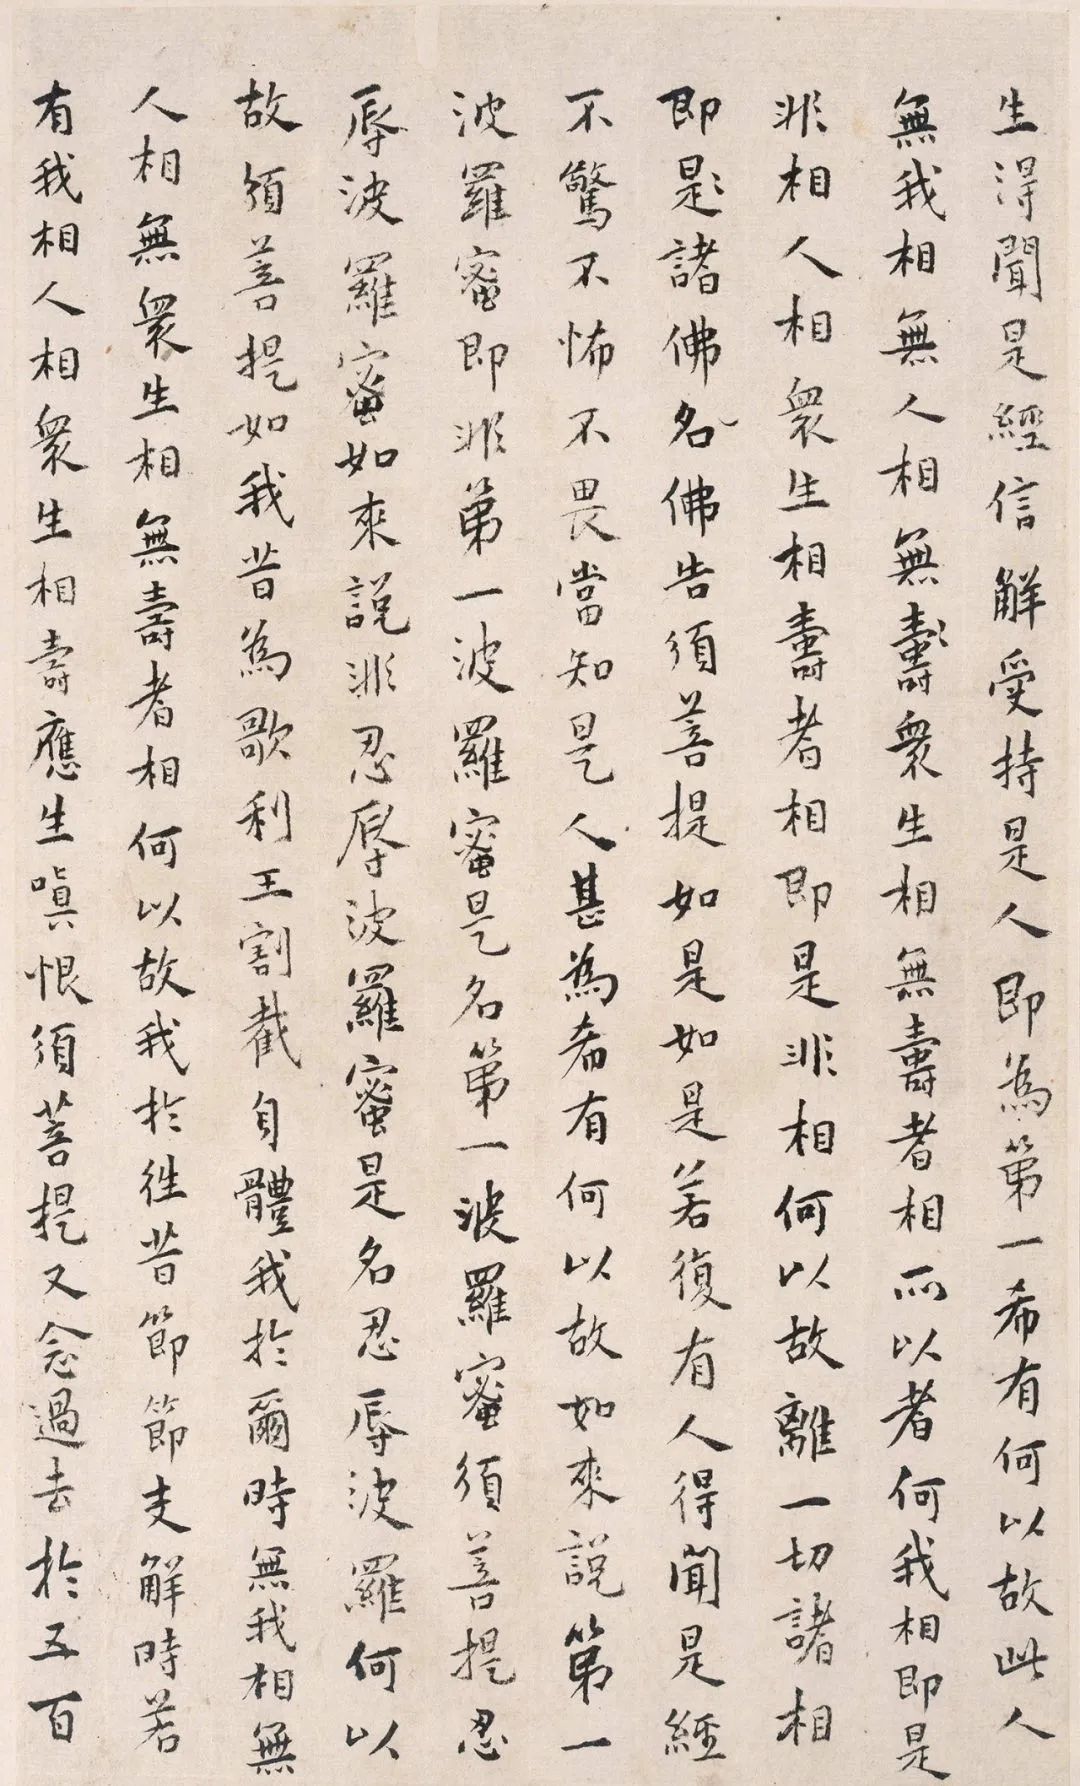 生淂聞是經信解受持是人即為第一希有何以故此人
無我相無人相無壽衆生相無壽者相所以者何我相即是
非相人相衆生相壽者相即是非相何以故離一切諸相
即是諸佛名佛告須菩提如是如是若復有人得聞是經
不驚不怖不畏當知是人甚為希有何以故如來說第一
波羅蜜即非第一波羅蜜是名第一波羅蜜須菩提忍
辱波羅蜜如來說非忍辱波羅蜜是名忍辱波羅何以
故須菩提如我昔為歌利王割截自體我於爾時無我相無
人相無衆生相無壽者相何以故我於往昔節節支解時若
有我相人相衆生相壽應生嗔恨須菩提又念過去於五百